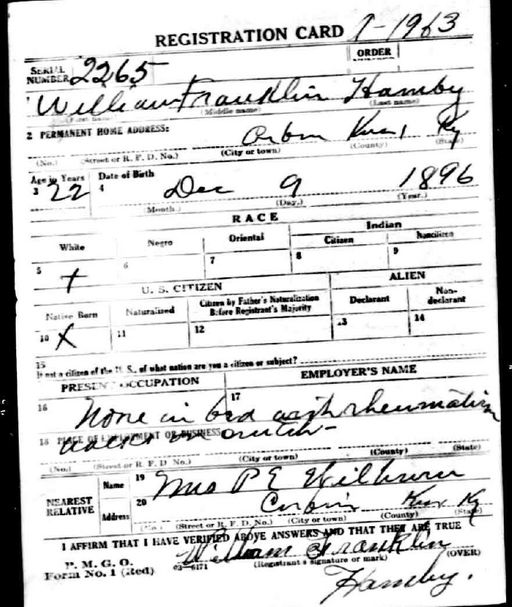 REGISTRATION CARD 1-1963
SERIAL NUMBER 2265 ORDER
William Franklin Hamby
(First name) (Middle name) (Last name)
2 PERMANENT HOME ADDRESS:
Corbin Knox Ky
(No.) (Street or R. F. D. No.) (City or town) (County) (State)
Age in Years Date of Birth
3 22 4 Dec 9 1896
(Month.) (Day.) (Year.)
RACE
White Negro Oriental Indian
Citizen Noncitizen
5 X 6 7 8 9
U. S. CITIZEN ALIEN
Native Born Naturalized Citizen by Father's Naturalization Before Registrant's Majority Declarant Non-declarant
10 X 11 12 13 14
15 If not a citizen of the U. S., of what nation are you a citizen or subject?
PRESENT OCCUPATION EMPLOYER'S NAME
16 17
None in bed with rheumatism
18 PLACE OF EMPLOYMENT OR BUSINESS
walks on crutch
(No.) (Street or R. F. D. No.) (City or town) (County) (State)
NEAREST RELATIVE
Name 19 Mrs P E Wilburn
Address 20 Corbin Knox Ky
(No.) (Street or R. F. D. No.) (City or town) (County) (State)
I AFFIRM THAT I HAVE VERIFIED ABOVE ANSWERS AND THAT THEY ARE TRUE
P. M. G. O.
Form No. 1 (Red) 03-6171 William Franklin
(Registrant's signature or mark) (OVER)
Hamby.